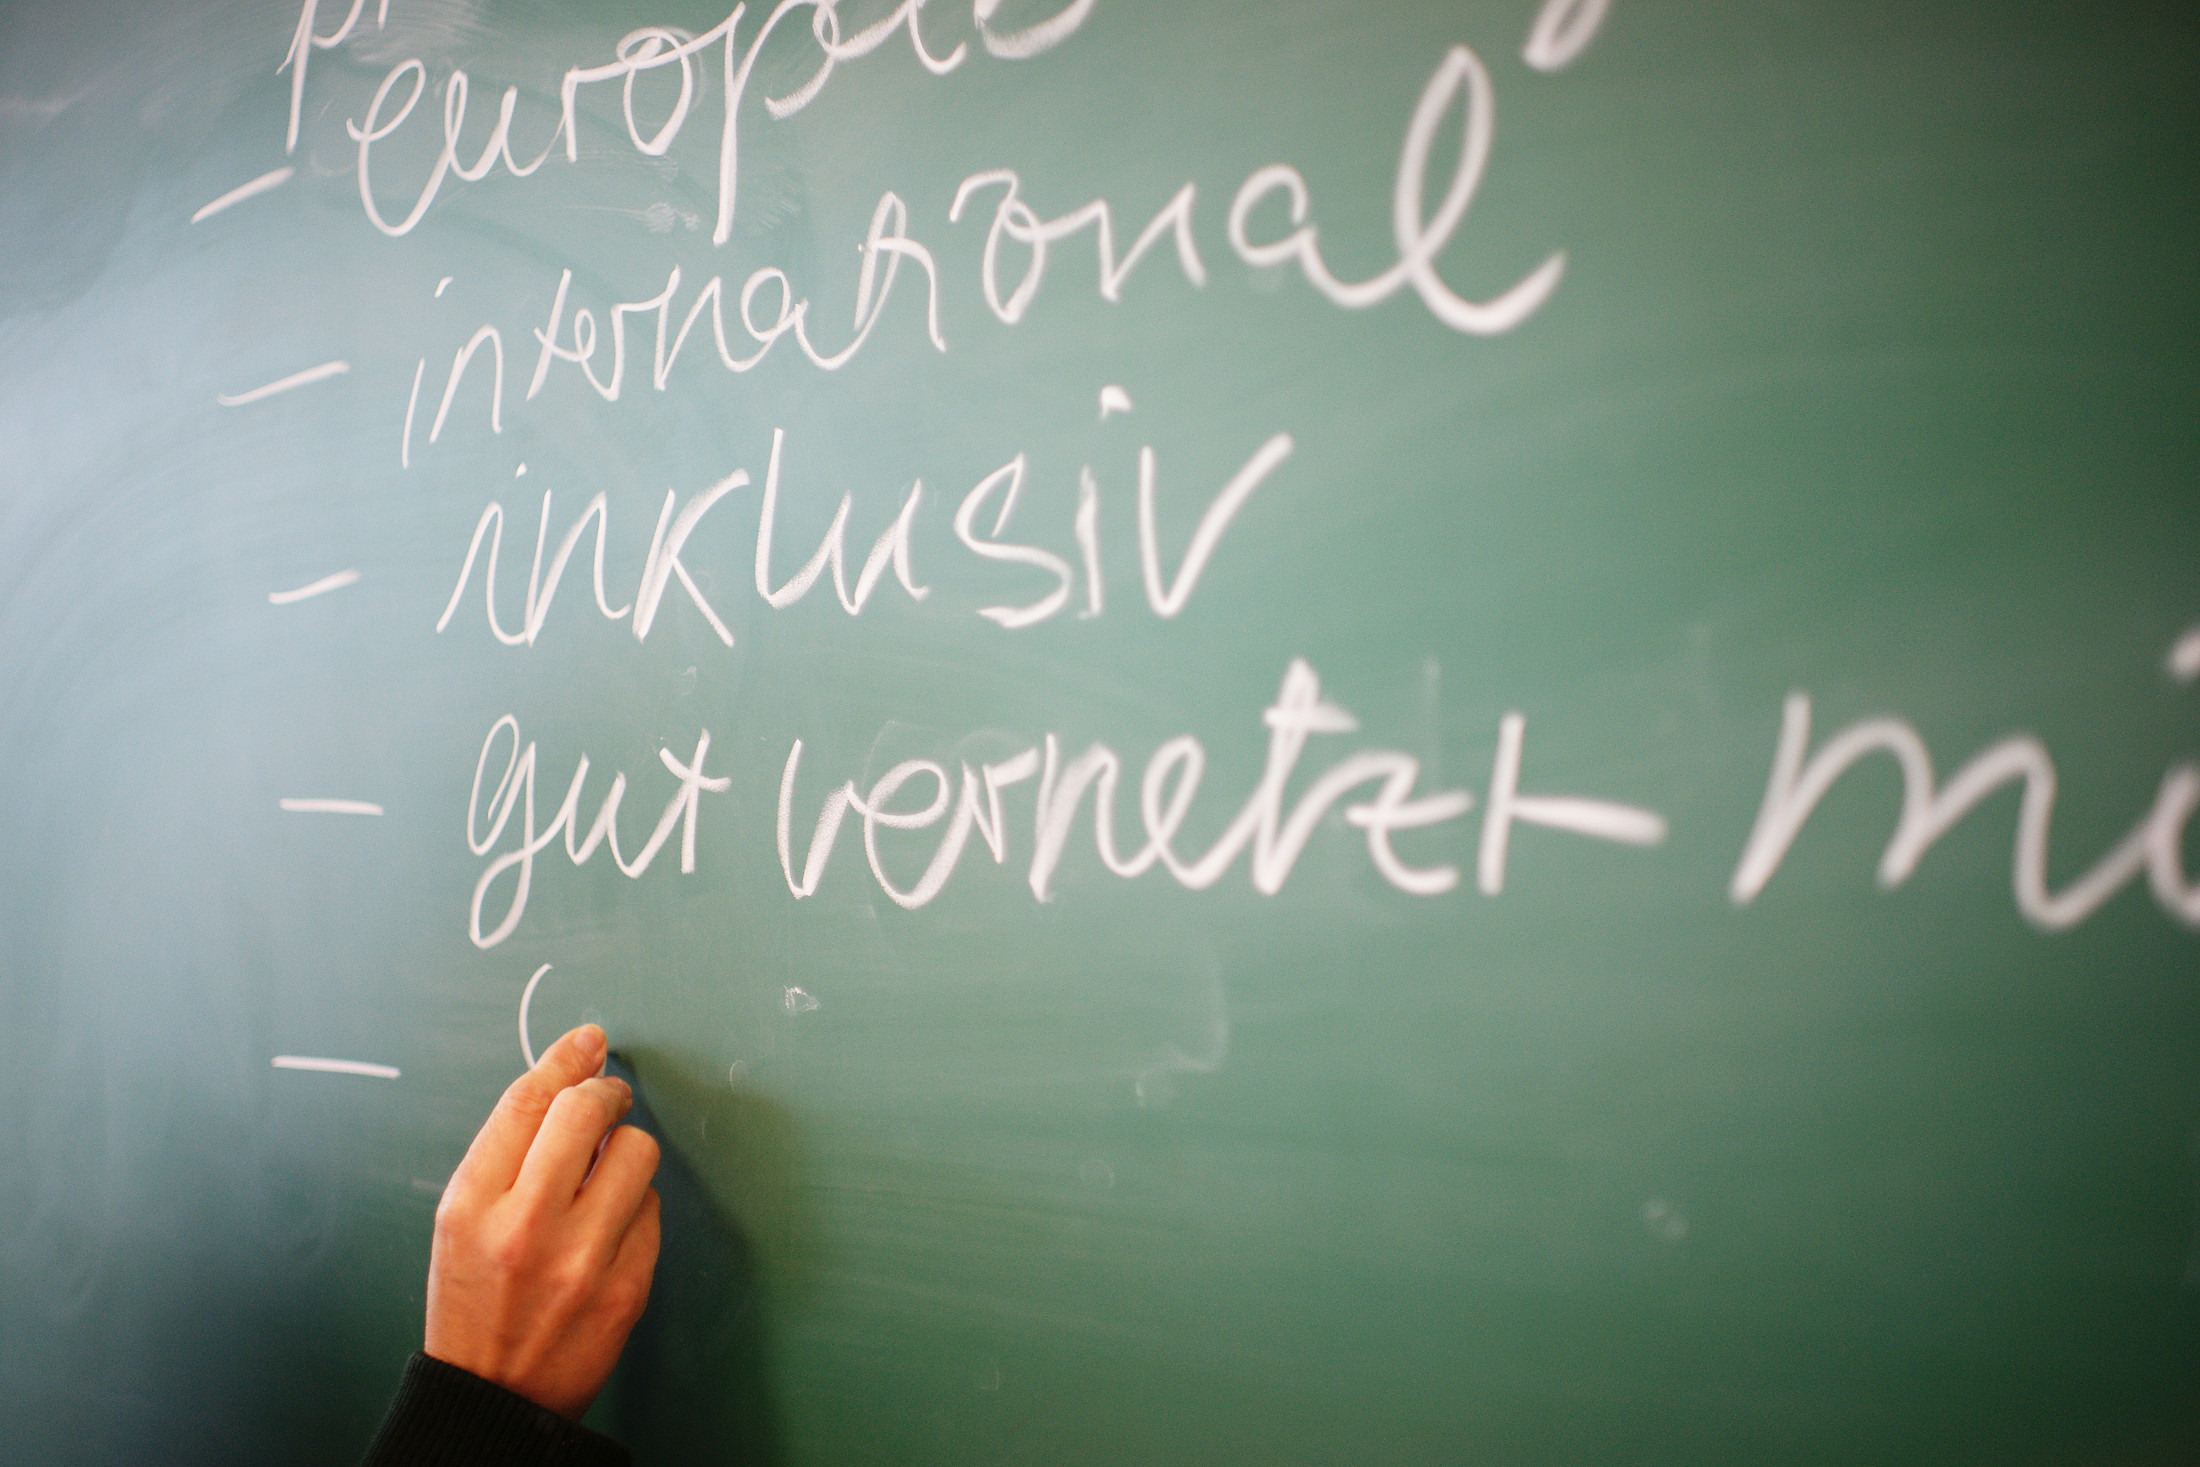 - europäis
- international
- inklusiv
- gut vernetzt mi
-